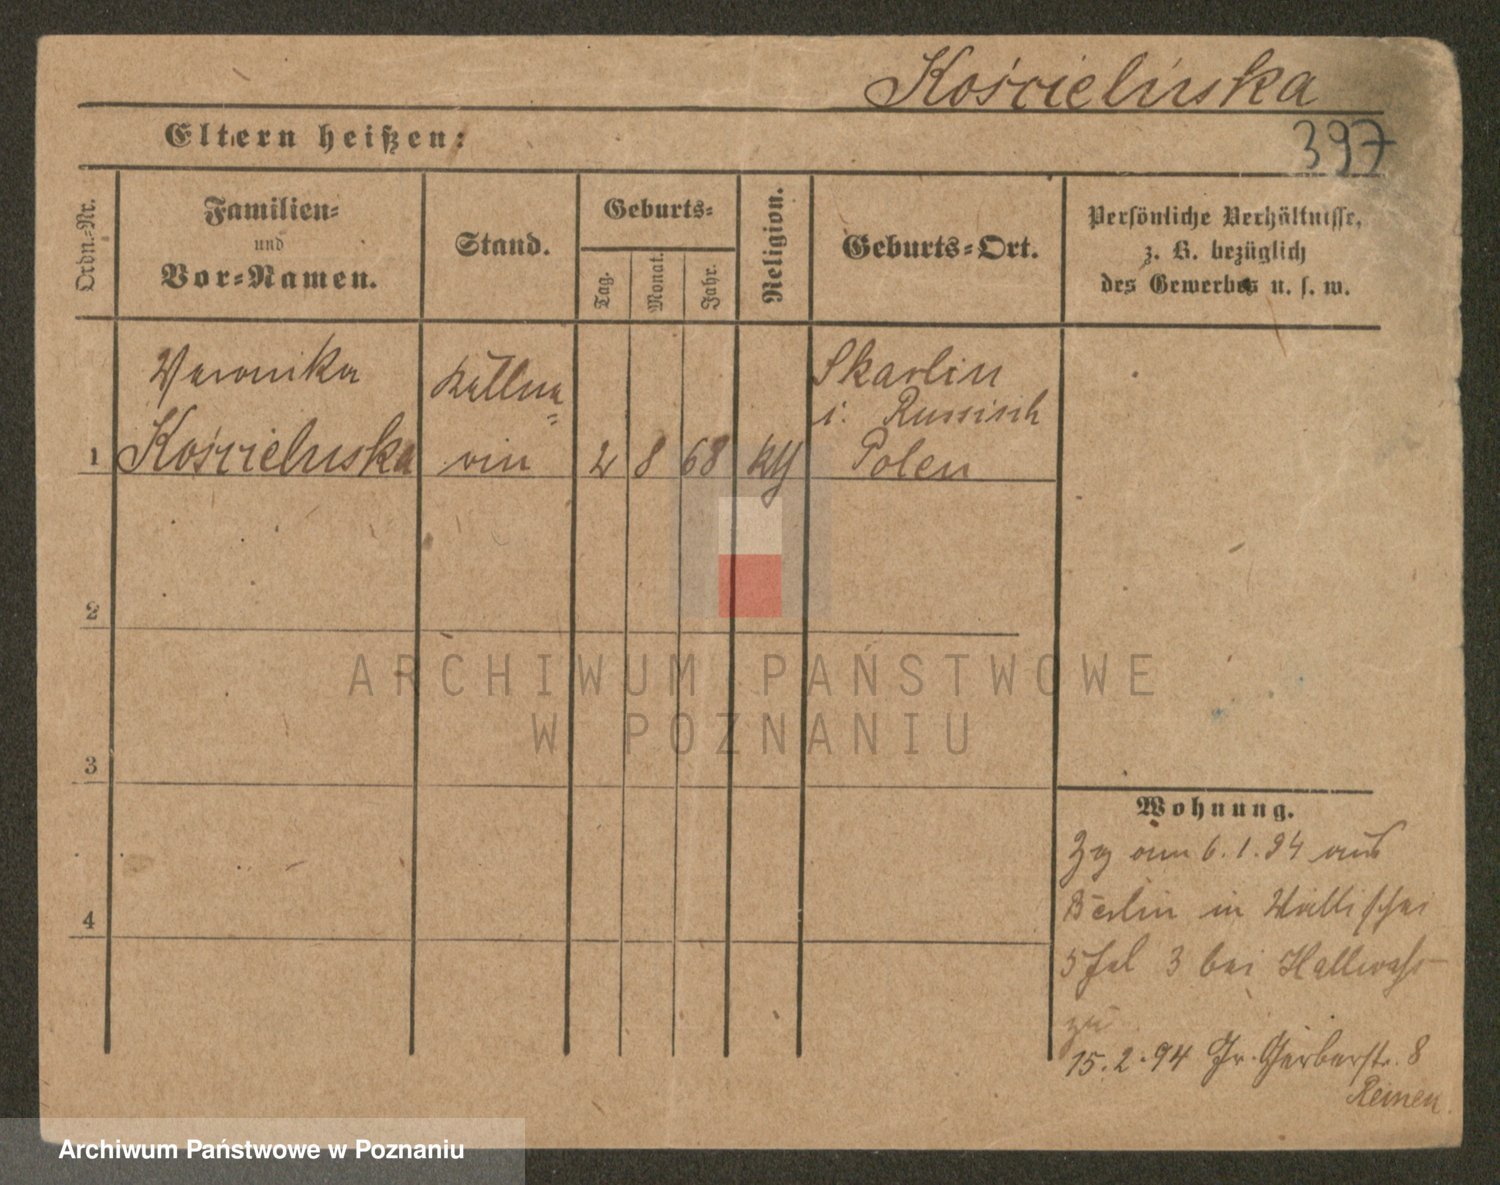 Kościelińska
397
Eltern heißen:
Ordn.-Nr.
Familien-
und
Vor-Namen.
Stand.
Geburts-
Tag.
Monat.
Jahr.
Religion.
Geburts-Ort.
Persönliche Verhältnisse,
z. B. bezüglich
des Gewerbes u. s. w.
Veronika
Kellne-
Skarlin
i. Russisch
1 Kościelińska rin 2 8 68 kth Polen
2
ARCHIWUM PAŃSTWOWE
W POZNANIU
3
Wohnung.
Zg am 6.1.94 aus
Berlin in Wallischei
4
3 bei Hallwass
zu
15.2.94 Gr. Gerberstr. 8
Archiwum Państwowe w Poznaniu